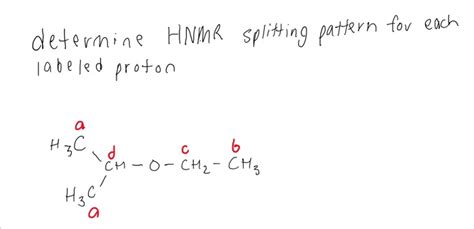 determine HNMR splitting pattern for each
labeled proton
a
H₃C
d c b
CH – O – CH₂ – CH₃
H₃C
a